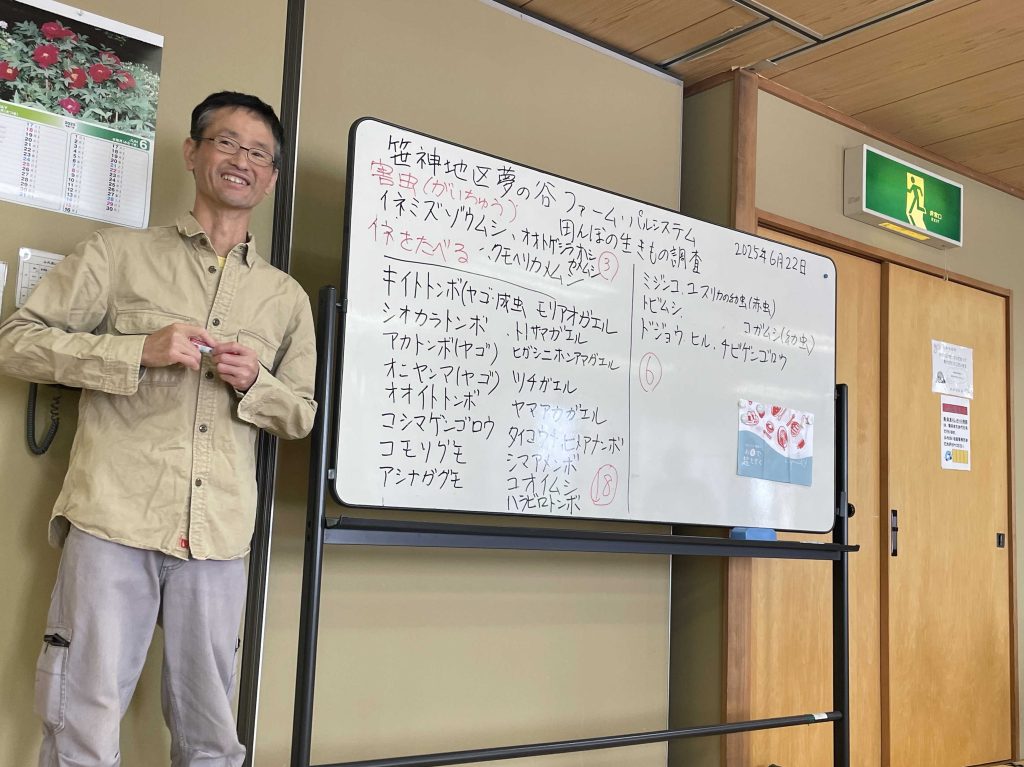 笹神地区夢の谷ファーム・パルシステム
田んぼの生きもの調査
2025年6月22日
害虫(がいちゅう)
イネミズゾウムシ、オオトゲシラホシカメムシ
イネをたべる
・クモヘリカメムシ
3
キイトトンボ(ヤゴ・成虫
シオカラトンボ
アカトンボ(ヤゴ)
オニヤンマ(ヤゴ)
オオイトトンボ
コシマゲンゴロウ
コモリグモ
アシナガグモ
モリアオガエル
トノサマガエル
ヒガシニホンアマガエル
ツチガエル
ヤマアカガエル
タイコウチ、ヒメアメンボ
シマアメンボ
コオイムシ
ハラビロトンボ
18
ミジンコ、ユスリカの幼虫(赤虫)
トビムシ、
コガムシ(幼虫)
ドジョウ ヒル、チビゲンゴロウ
6
非常口
EXIT
6